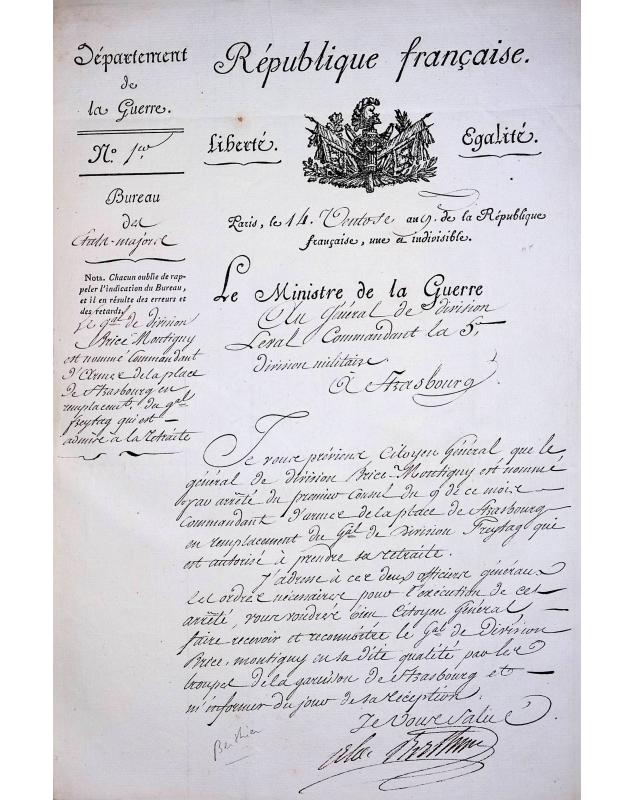 Département
de
la Guerre.
République française.
Liberté.
Egalité.
N.º 1er
Bureau
de
Etat-major.
Paris, le 14 Ventose an 9. de la République
française, une et indivisible.
Nota. Chacun oublie de rap-
peler l'indication du Bureau,
et il en résulte des erreurs et
des retards.
Le gal de division
Brice Montigny
est nommé Commandant
d'Armes de la place
de Strasbourg en
remplacemt. du gal
Freytag qui est
admis à la retraite
Le Ministre de la Guerre
Au Général de division
Leval Commandant la 5e
division militaire.
à Strasbourg
Je vous préviens, Citoyen Général, que le
général de division Brice-Montigny est nommé
par arrêté du premier Consul du 9 de ce mois
Commandant d'armes de la place de Strasbourg
en remplacement du Gal de Division Freytag qui
est autorisé à prendre sa retraite.
J'adresse à ces deux officiers généraux
les ordres nécessaires pour l'exécution de cet
arrêté, vous voudrez bien, Citoyen Général
faire recevoir et reconnoitre le Gal de Division
Brice-montigny en sa dite qualité par les
troupes de la garnison de Strasbourg et
m'informer du jour de sa réception.
Je vous Salue
Alex Berthier
Berthier